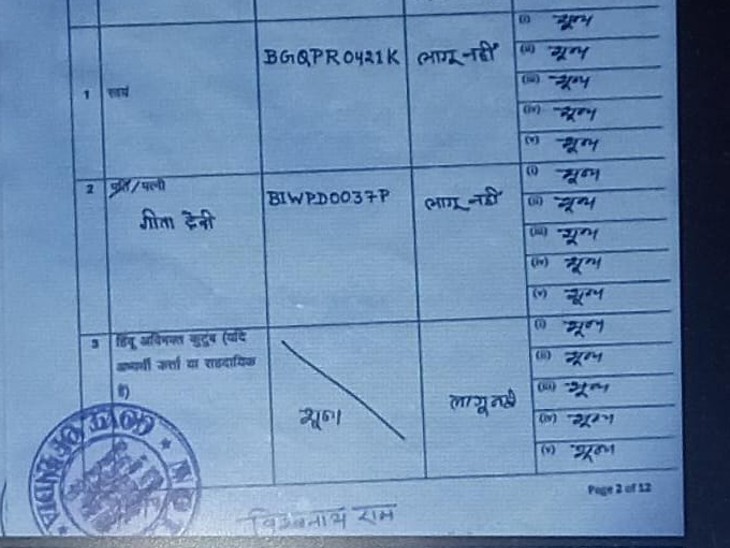 (i) शून्य
BGQPR0421K लागू नहीं (ii) शून्य
1 स्वयं (iii) शून्य
(iv) शून्य
(v) शून्य
2 पति/पत्नी (i) शून्य
गीता देवी BIWPD0037P लागू नहीं (ii) शून्य
(iii) शून्य
(iv) शून्य
(v) शून्य
3 हिंदू अविभक्त कुटुंब (यदि (i) शून्य
अभ्यर्थी कर्ता या सहदायिक (ii) शून्य
है) शून्य लागू नहीं (iii) शून्य
(iv) शून्य
(v) शून्य
GOVT OF INDIA
Page 2 of 12
विश्वनाथ राम